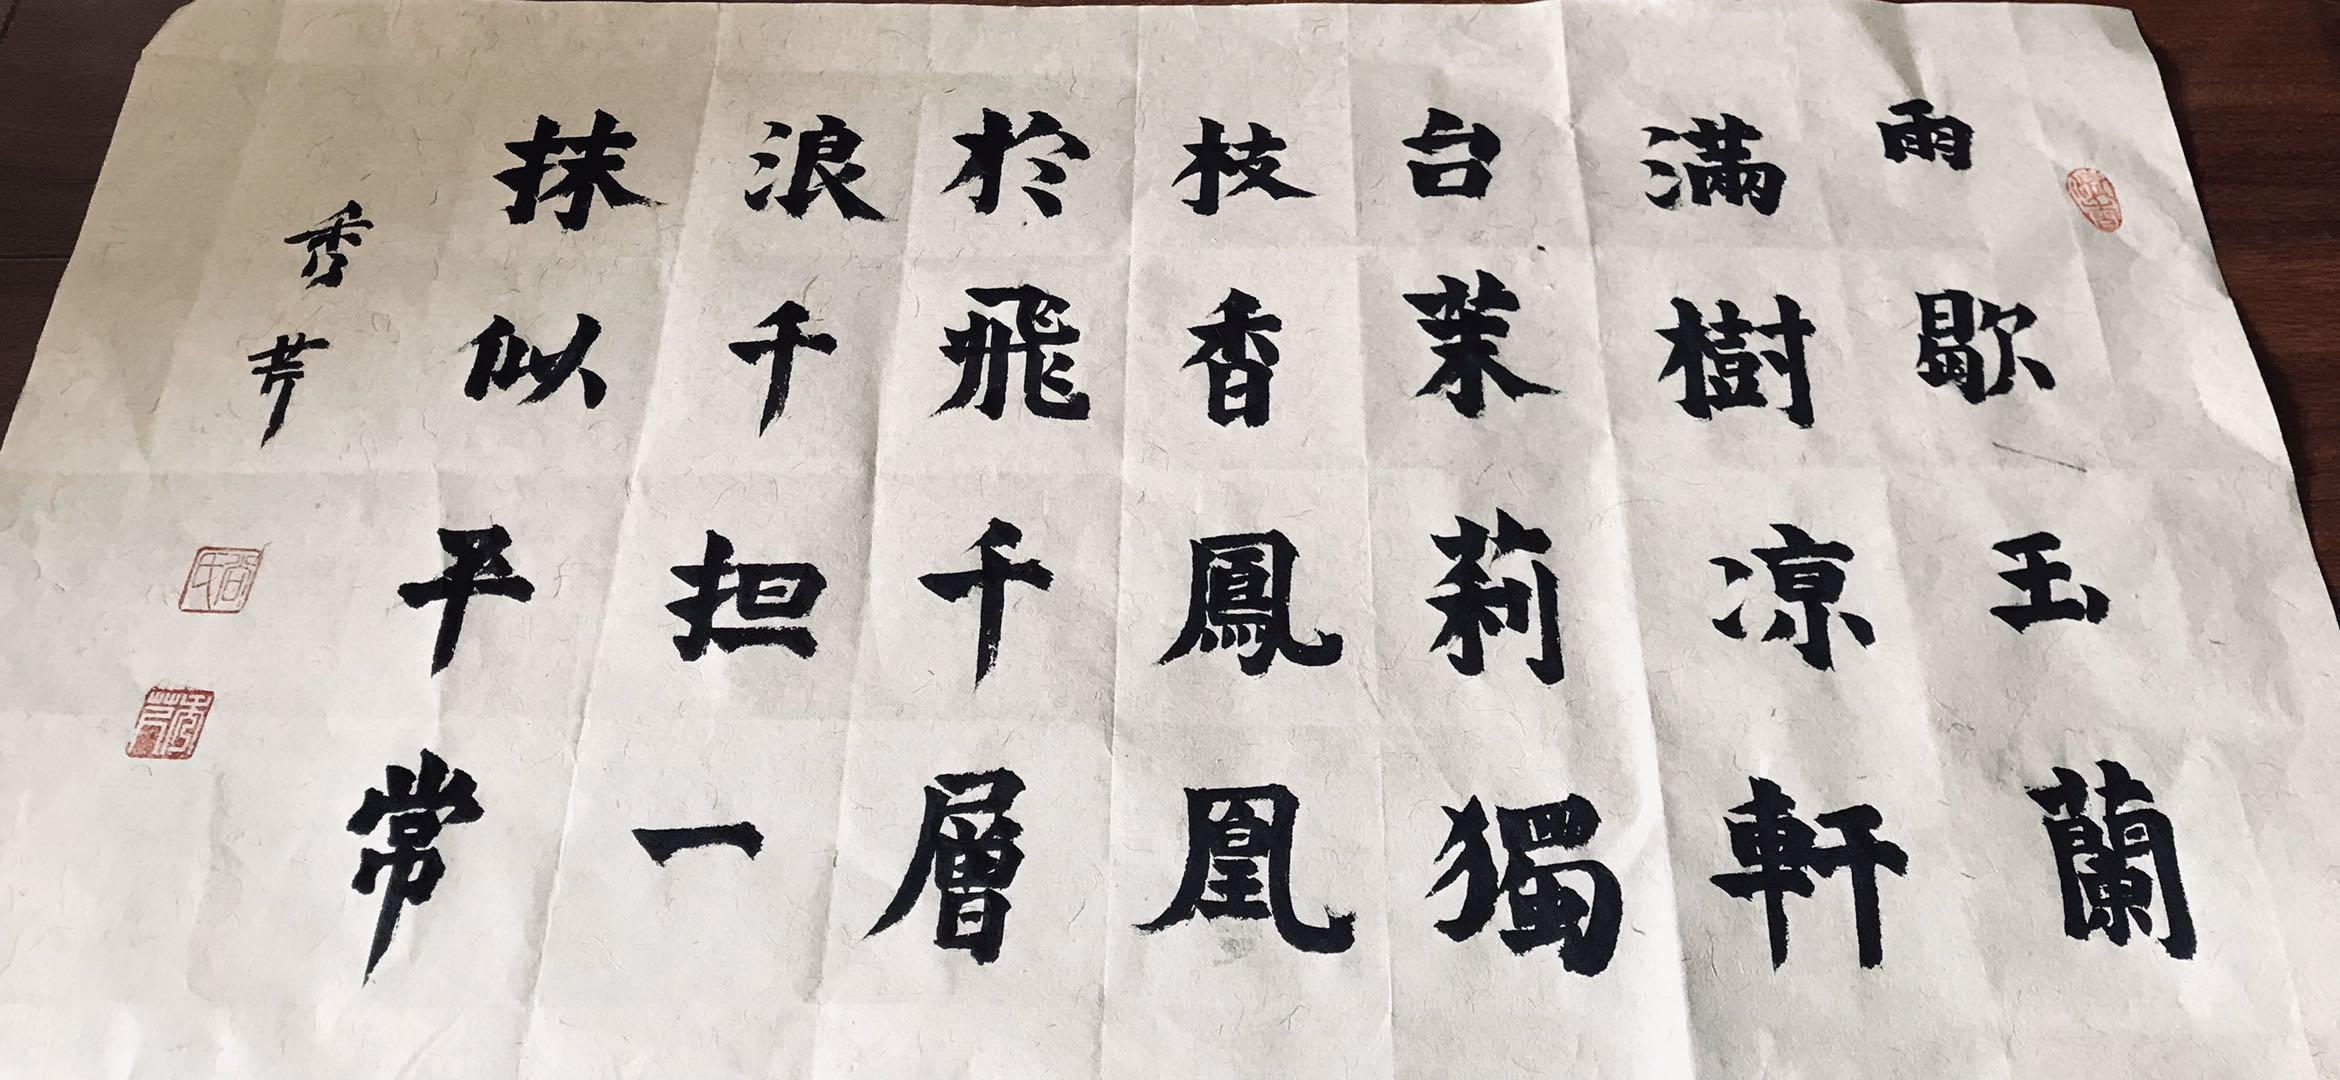 雨歇玉蘭
滿樹凉軒
台茉莉獨
枝香鳳凰
於飛千層
浪千担一
抹似平常
秀芹
尚氏
秀芹